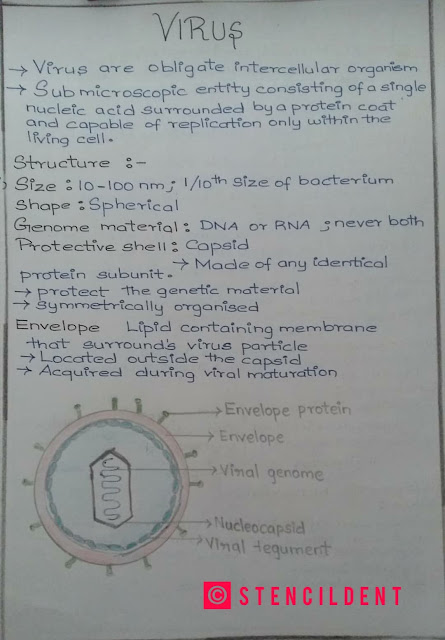 VIRUS
→ Virus are obligate intercellular organism
→ Submicroscopic entity consisting of a single
nucleic acid surrounded by a protein coat
and capable of replication only within the
living cell.
Structure :-
Size : 10-100 nm; 1/10th size of bacterium
Shape : Spherical
Genome material : DNA or RNA ; never both
Protective shell : Capsid
→ Made of any identical
protein subunit.
→ protect the genetic material
→ symmetrically organised
Envelope Lipid containing membrane
that surround's virus particle
→ Located outside the capsid
→ Acquired during viral maturation
→ Envelope protein
→ Envelope
→ Viral genome
→ Nucleocapsid
→ Viral tegument
© STENCILDENT